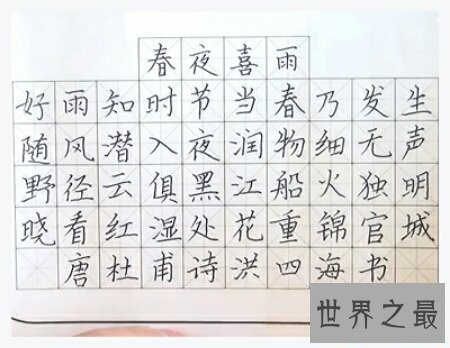 春夜喜雨
好雨知时节当春乃发生
随风潜入夜润物细无声
野径云俱黑江船火独明
晓看红湿处花重锦官城
唐杜甫诗洪四海书
世界之最